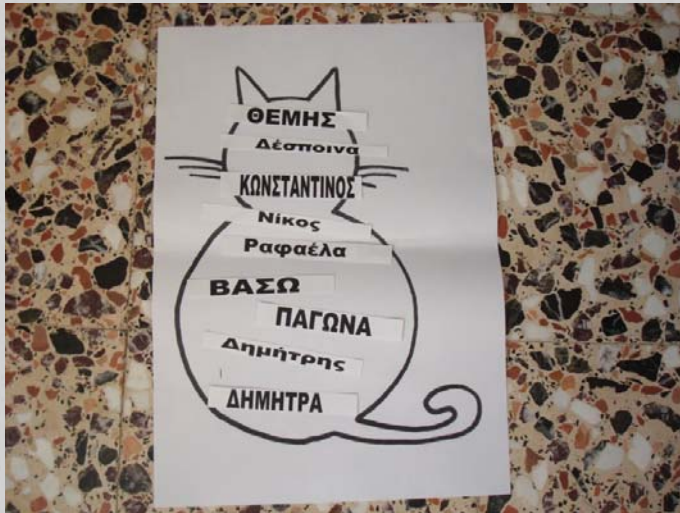 ΘΕΜΗΣ
Δέσποινα
ΚΩΝΣΤΑΝΤΙΝΟΣ
Νίκος
Ραφαέλα
ΒΑΣΩ
ΠΑΓΩΝΑ
Δημήτρης
ΔΗΜΗΤΡΑ